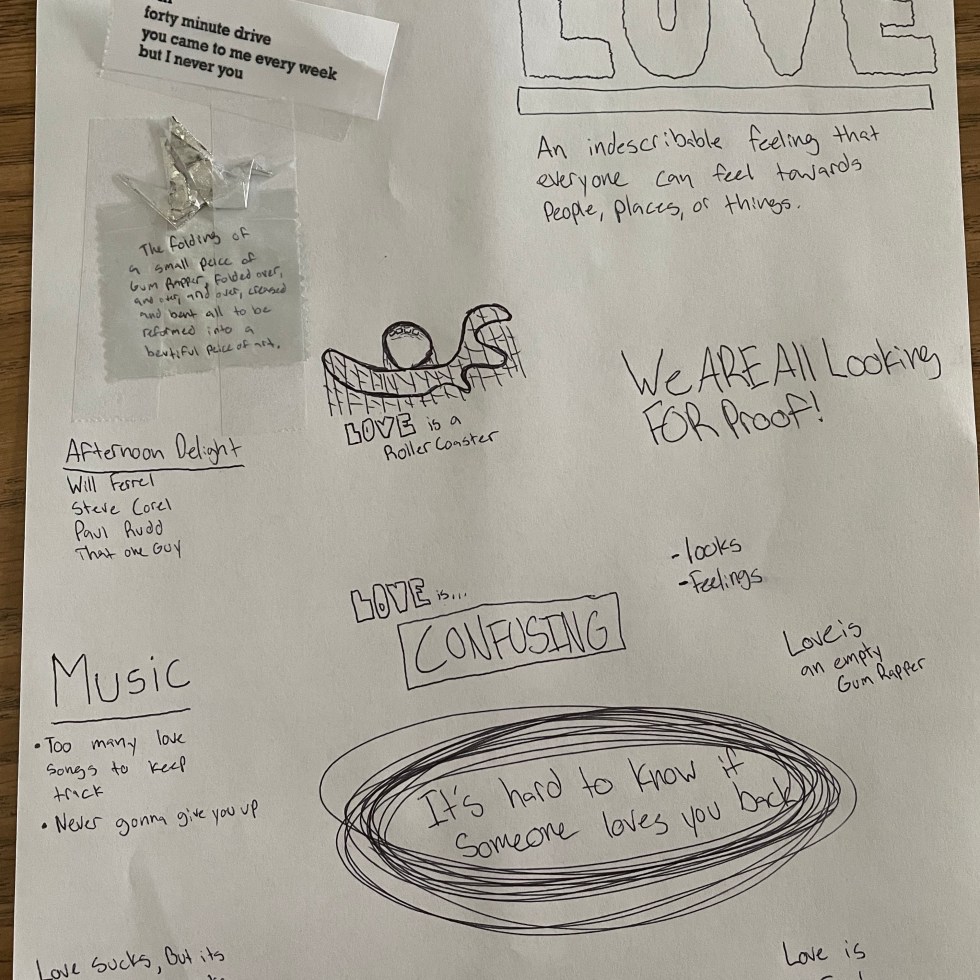 forty minute drive
you came to me every week
but I never you
LOVE
An indescribable feeling that
everyone can feel towards
People, places, or things.
The folding of
a small peice of
Gum Rapper, folded over,
and over, and over, creased
and bent all to be
reformed into a
beutiful peice of art.
LOVE is a
Roller Coaster
We ARE All Looking
FOR Proof!
Afternoon Delight
Will Ferrel
Steve Corel
Paul Rudd
That one Guy
-looks
-Feelings
LOVE is...
CONFUSING
Love is
an empty
Gum Rapper
Music
• Too many love
songs to keep
track
• Never gonna give you up
It's hard to know if
Someone loves you back
Love sucks, But its
Love is